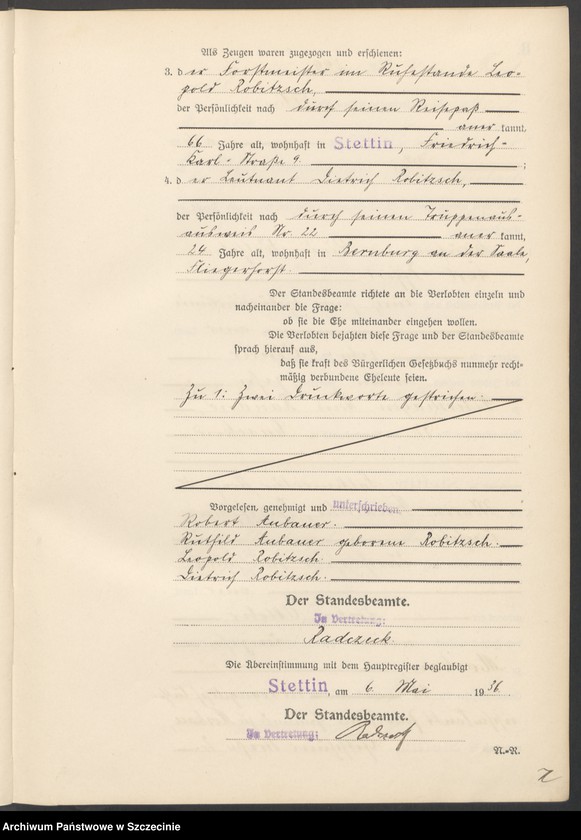 Als Zeugen waren zugezogen und erschienen:
3. der Forstmeister im Ruhestande Leo-
pold Robitzsch,
der Persönlichkeit nach durch seinen Reisepaß
aner kannt,
66 Jahre alt, wohnhaft in Stettin, Friedrich-
Karl-Straße 9 ;
4. der Leutnant Dietrich Robitzsch,
der Persönlichkeit nach durch seinen Truppenaus-
ausweis Nr. 22 aner kannt,
24 Jahre alt, wohnhaft in Bernburg an der Saale,
Fliegerhorst.
Der Standesbeamte richtete an die Verlobten einzeln und
nacheinander die Frage:
ob sie die Ehe miteinander eingehen wollen.
Die Verlobten bejahten diese Frage und der Standesbeamte
sprach hierauf aus,
daß sie kraft des Bürgerlichen Gesetzbuchs nunmehr recht-
mäßig verbundene Eheleute seien.
Zu 1: Zwei Druckworte gestrichen.
Vorgelesen, genehmigt und unterschrieben
Robert Aubauer.
Ruthild Aubauer geborene Robitzsch.
Leopold Robitzsch.
Dietrich Robitzsch.
Der Standesbeamte.
In Vertretung:
Radczeck
Die Übereinstimmung mit dem Hauptregister beglaubigt
Stettin, am 6. Mai 1936
Der Standesbeamte.
In Vertretung: Radczeck
N.-R.
Archiwum Państwowe w Szczecinie